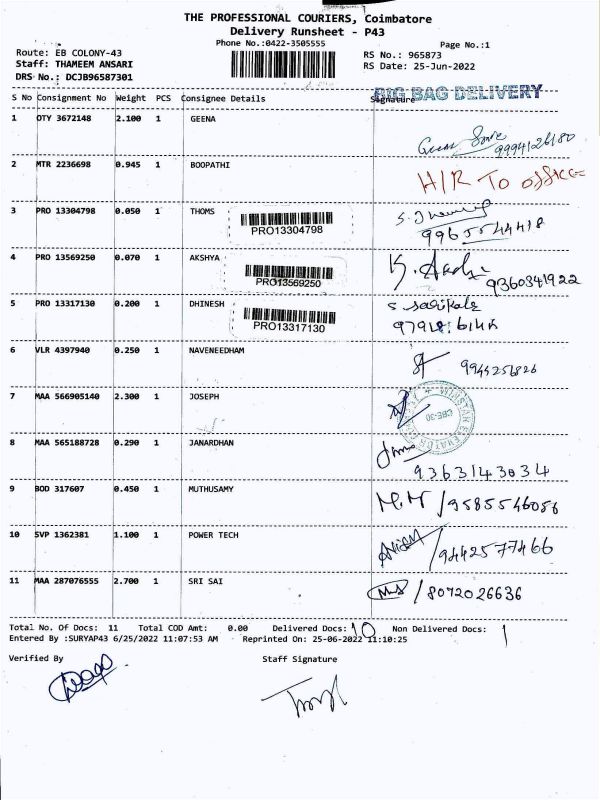 THE PROFESSIONAL COURIERS, Coimbatore
Delivery Runsheet - P43
Phone No.:0422-3505555
Page No.:1
Route: EB COLONY-43
RS No.: 965873
Staff: THAMEEM ANSARI
RS Date: 25-Jun-2022
DRS No.: DCJB96587301
BIG BAG DELIVERY
S No Consignment No Weight PCS Consignee Details Signature
1 OTY 3672148 2.100 1 GEENA
9994126180
2 MTR 2236698 0.945 1 BOOPATHI
H/R To office
3 PRO 13304798 0.050 1 THOMS
PRO13304798
9965544418
4 PRO 13569250 0.070 1 AKSHYA
PRO13569250
9360341922
5 PRO 13317130 0.200 1 DHINESH
PRO13317130
S. Sasikala
6 VLR 4397940 0.250 1 NAVENEEDHAM
9944251826
7 MAA 566905140 2.300 1 JOSEPH
CBE-30
8 MAA 565188728 0.290 1 JANARDHAN
9363143034
9 BOD 317607 0.450 1 MUTHUSAMY
M.M /9585546056
10 SVP 1362381 1.100 1 POWER TECH
/9442577466
11 MAA 287076555 2.700 1 SRI SAI
/8072026636
Total No. Of Docs: 11 Total COD Amt: 0.00 Delivered Docs: 10 Non Delivered Docs: 1
Entered By :SURYAP43 6/25/2022 11:07:53 AM Reprinted On: 25-06-2022 11:10:25
Verified By Staff Signature